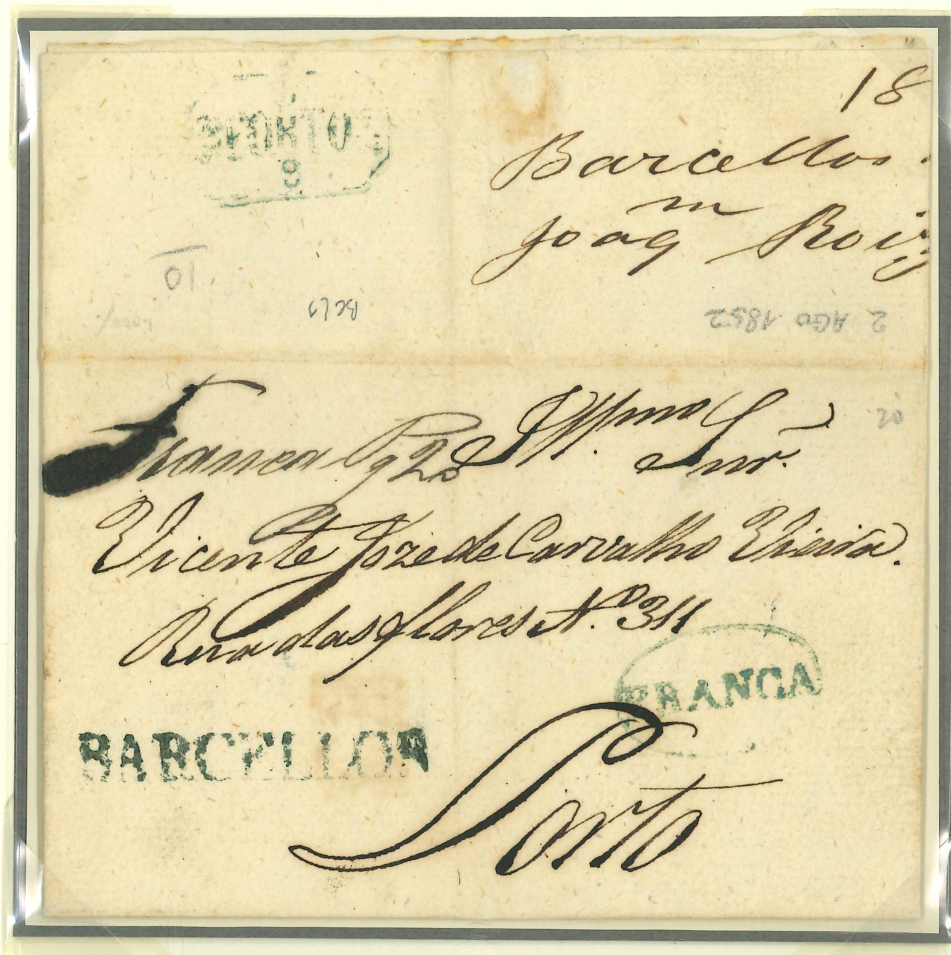 18
Barcellos
m
Joaq Roiz
PORTO
10
BCL7
2 AGO 1852
20
Franca Pg 25 Illmo Snr.
Vicente Joze de Carvalho Vieira.
Rua das flores N.º 311
FRANCA
BARCELLOS
Porto